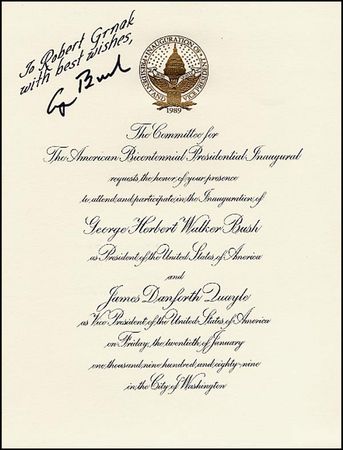 To Robert Grnak
with best wishes,
G Bush
INAUGURATION OF
PRESIDENT
VICE PRESIDENT
1989
The Committee for
The American Bicentennial Presidential Inaugural
requests the honor of your presence
to attend and participate in the Inauguration of
George Herbert Walker Bush
as President of the United States of America
and
James Danforth Quayle
as Vice President of the United States of America
on Friday, the twentieth of January
one thousand, nine hundred, and eighty-nine
in the City of Washington